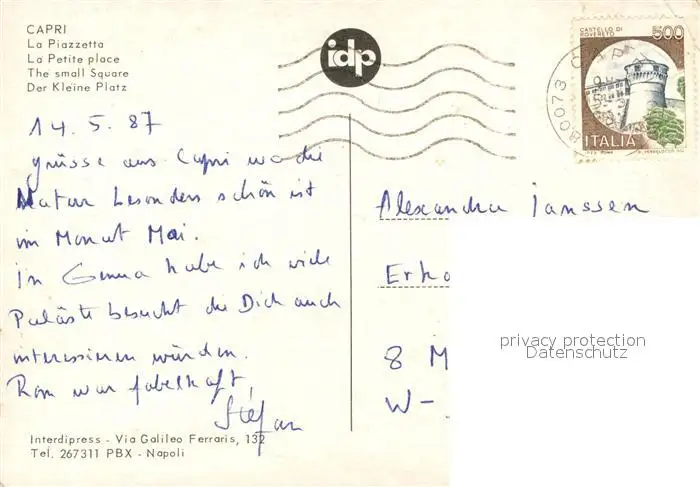 CAPRI
La Piazzetta
La Petite place
The small Square
Der Kleine Platz
idp
CASTELLO DI ROVERETO
500
ITALIA
80073 CAP
14.5.87
Grüsse aus Capri wo die
Natur besonders schön ist
im Monat Mai.
In Genua habe ich viele
Paläste besucht die Dich auch
interessieren würden.
Rom war fabelhaft,
Stefan
Alexandra Janssen
Erho
8 M
W-
privacy protection
Datenschutz
Interdipress - Via Galileo Ferraris, 132
Tel. 267311 PBX - Napoli